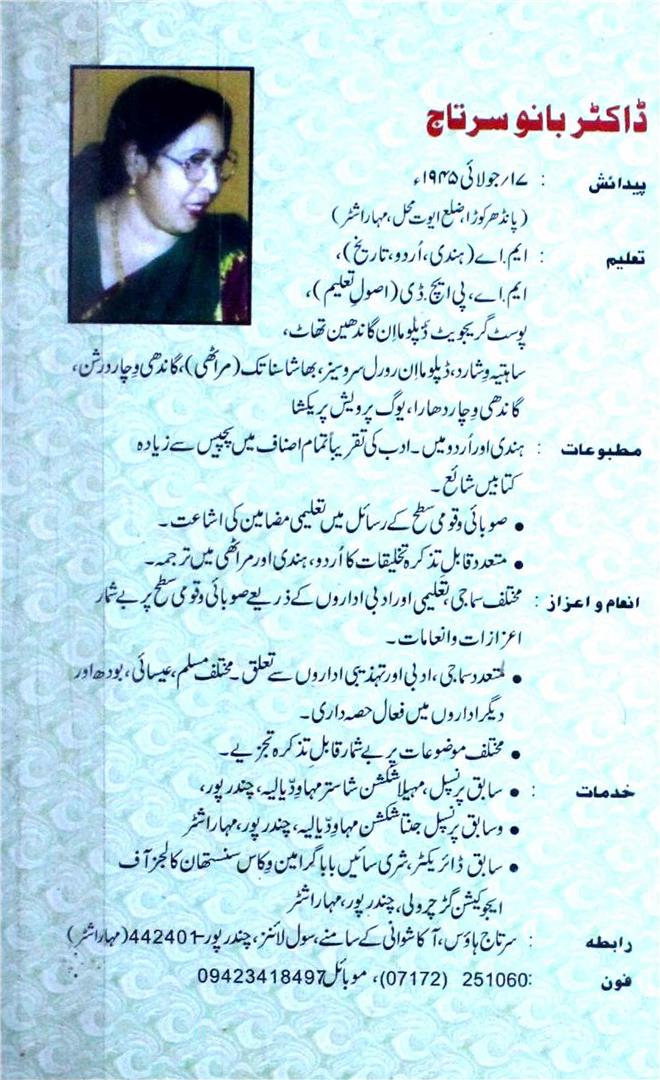 ڈاکٹر بانو سرتاج
پیدائش : ۱۷؍جولائی ۱۹۴۵ء
(پانڈھر کوڑا، ضلع ایوت محل، مہاراشٹر)
تعلیم : ایم.اے (ہندی، اُردو، تاریخ)،
ایم.اے، پی ایچ.ڈی (اصولِ تعلیم)،
پوسٹ گریجویٹ ڈپلوما اِن گاندھین تھاٹ،
ساہتیہ وِشارد، ڈپلوما اِن رورل سروسیز، بھاشا سناتک (مراٹھی)، گاندھی وِچار درشن،
گاندھی وِچار دھارا، یوگ پرویش پریکشا
مطبوعات : ہندی اور اُردو میں۔ ادب کی تقریباً تمام اصناف میں پچیس سے زیادہ
کتابیں شائع۔
• صوبائی و قومی سطح کے رسائل میں تعلیمی مضامین کی اشاعت۔
• متعدد قابلِ تذکرہ تخلیقات کا اُردو، ہندی اور مراٹھی میں ترجمہ۔
انعام و اعزاز : مختلف سماجی، تعلیمی اور ادبی اداروں کے ذریعے صوبائی و قومی سطح پر بے شمار
اعزازات و انعامات۔
• متعدد سماجی، ادبی اور تہذیبی اداروں سے تعلق۔ مختلف مسلم، عیسائی، بودھ اور
دیگر اداروں میں فعال حصہ داری۔
• مختلف موضوعات پر بے شمار قابلِ تذکرہ تجزیے۔
خدمات : • سابق پرنسپل، مہیلا شکشن شاستر مہاودّیالیہ، چندرپور،
• وسابق پرنسپل جنتا شکشن مہاودّیالیہ، چندرپور، مہاراشٹر
• سابق ڈائریکٹر، شری سائیں بابا گرامین وکاس سنستھان کالجز آف
ایجوکیشن گڑچرولی، چندرپور، مہاراشٹر
رابطہ : سرتاج ہاؤس، آکاشوانی کے سامنے، سول لائنز، چندرپور-442401 (مہاراشٹر)
فون : 251060 (07172)، موبائل 09423418497